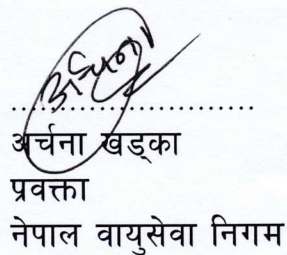 अर्चना
....................................
अर्चना खड्का
प्रवक्ता
नेपाल वायुसेवा निगम